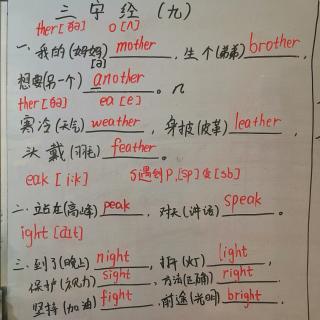 三字经（九）
ther[ðə] o[ʌ]
一、我的(妈妈) mother，生个(弟弟) brother
[ə]
想要(另一个) another。
ther[ðə] ea[e]
寒冷(天气) weather，身披(皮革) leather，
头戴(羽毛) feather。
eak[i:k] S遇到P,[sp]发[sb]
二、站在(高峰) peak，对天(讲话) speak。
ight[aɪt]
三、到了(晚上) night，打开(灯) light，
保护(视力) sight，方法(正确) right，
坚持(加油) fight，前途(光明) bright。